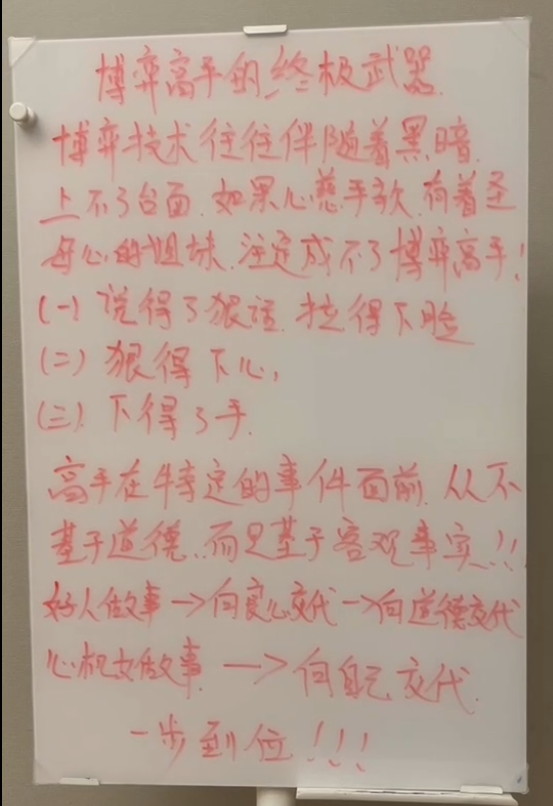 博弈高手的终极武器
博弈技术往往伴随着黑暗
上不了台面.如果心慈手软.有着圣
母心的姐妹.注定成不了博弈高手!
(一) 说得了狠话.拉得下脸
(二) 狠得下心,
(三) 下得了手.
高手在特定的事件面前.从不
基于道德.而是基于客观事实!!
好人做事→向良心交代→向道德交代
心机女做事 → 向自己交代.
一步到位!!!